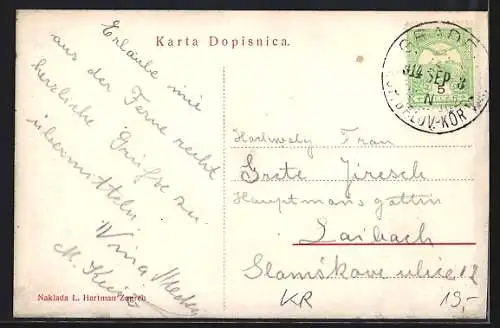 Karta Dopisnica.
Erlaube mir
aus der Ferne recht
herzliche Grüße zu
übermitteln
Nina
M.
Naklada L. Hartman Zagreb
GRADE
914 SEP
5
N
LOV-KÖR
Frau
Grete Jiresch
Hauptmannsgattin
Laibach
Slamškova ulica 12
KR
19,-